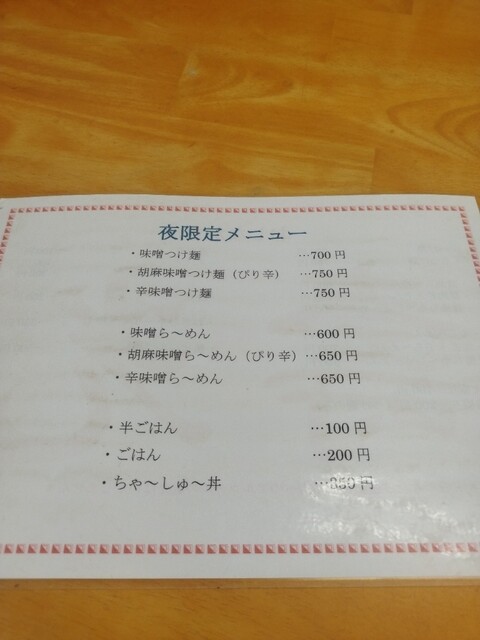 夜限定メニュー
・味噌つけ麺 …700円
・胡麻味噌つけ麺（ぴり辛） …750円
・辛味噌つけ麺 …750円
・味噌ら～めん …600円
・胡麻味噌ら～めん（ぴり辛）…650円
・辛味噌ら～めん …650円
・半ごはん …100円
・ごはん …200円
・ちゃ～しゅ～丼